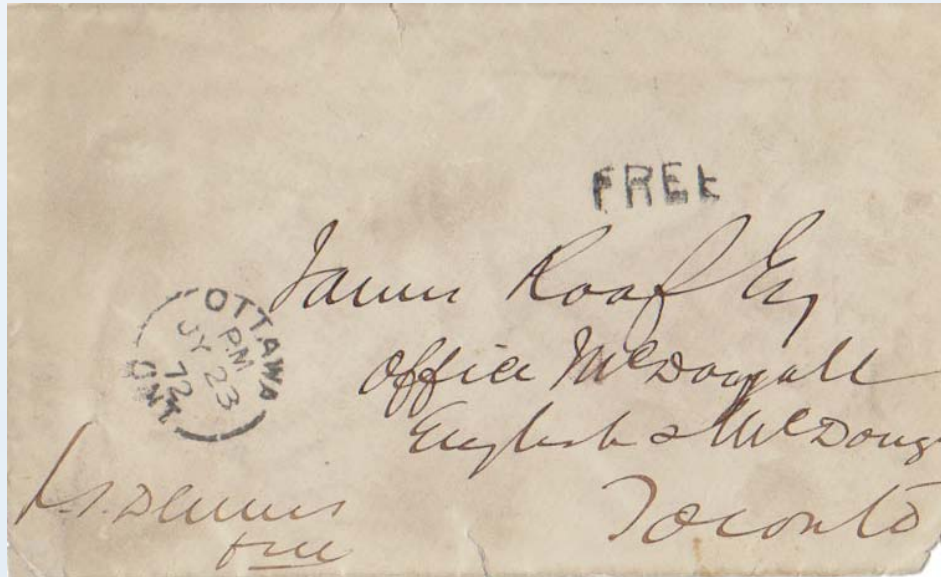 FREE
James Roaf Esq
Office McDougall
English & McDoug
Toronto
OTTAWA
PM
JY 23
72
ONT
Dennis
free